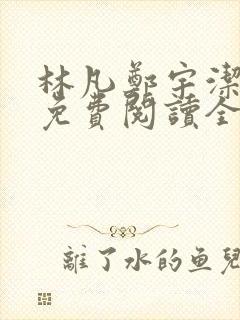 林凡鄭宇潔
免費閱讀全
離了水的鱼兒